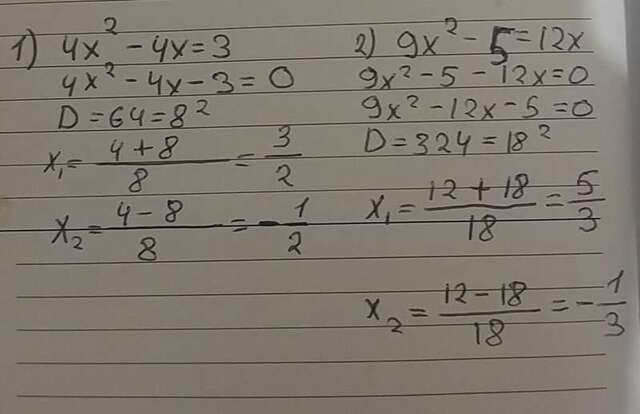 1) 4x² - 4x = 3
4x² - 4x - 3 = 0
D = 64 = 8²
x₁ = (4 + 8)/8 = 3/2
x₂ = (4 - 8)/8 = -1/2
2) 9x² - 5 = 12x
9x² - 5 - 12x = 0
9x² - 12x - 5 = 0
D = 324 = 18²
x₁ = (12 + 18)/18 = 5/3
x₂ = (12 - 18)/18 = -1/3